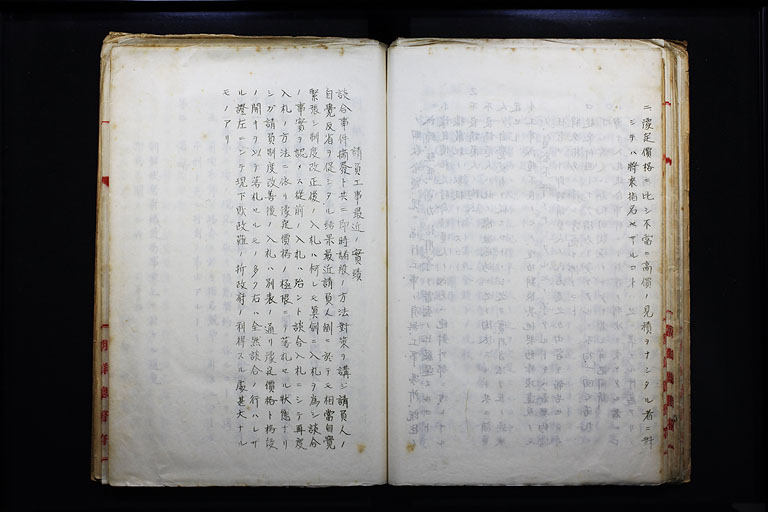 ニ豫定價格ニ比シ不當ニ高價ノ見積ヲナシタル者ニ對
シテハ將來指名セザルコト
請負工事最近ノ實績
談合事件摘發ト共ニ即時諸般ノ方法對策ヲ講ジ請負人ノ
自覺反省ヲ促シタル結果最近請負人側ニ於テモ相當自覺
緊張シ制度改正後ノ入札ハ何レモ眞劍ニ入札ヲ為シ談合
ノ事實ヲ認メス従前ノ入札ハ殆ント談合入札ニシテ再度
入札ノ方法ニ依リ豫定價格ノ極限ニテ落札セル狀態ナリ
シガ請負制度改善後ノ入札ハ別表ノ通リ豫定價格ト格段
ノ開キヲ以テ落札セルモノ多ク右ハ全然談合ノ行ハレサ
ル證左ニシテ現下財政難ノ折政府ノ利得スル處甚大ナル
モノアリ